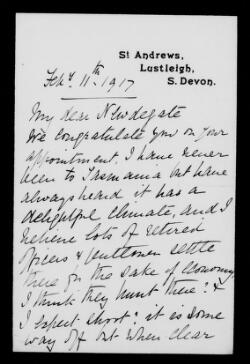 St Andrews,
Lustleigh,
S. Devon.
Feby. 11th 1917
My dear Newdegate
We congratulate you on your
appointment. I have never
been to Tasmania but have
always heard it has a
delightful climate, and I
believe lots of retired
officers & gentlemen settle
there for the sake of Economy
I think they hunt there? &
I expect shoot: it is some
way off but when clear